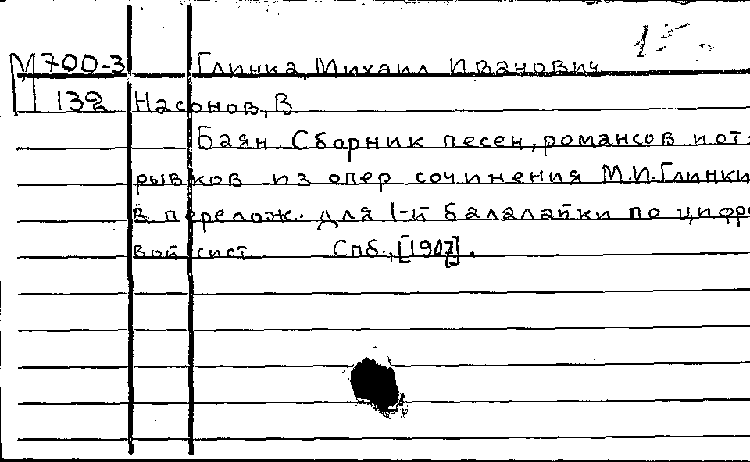 15
М700-3 Глинка, Михаил Иванович
132 Насонов, В
Баян Сборник песен, романсов и от-
рывков из опер сочинения М.И.Глинки
в перелож. для 1-й балалайки по цифро
вой сист Спб., [1907].